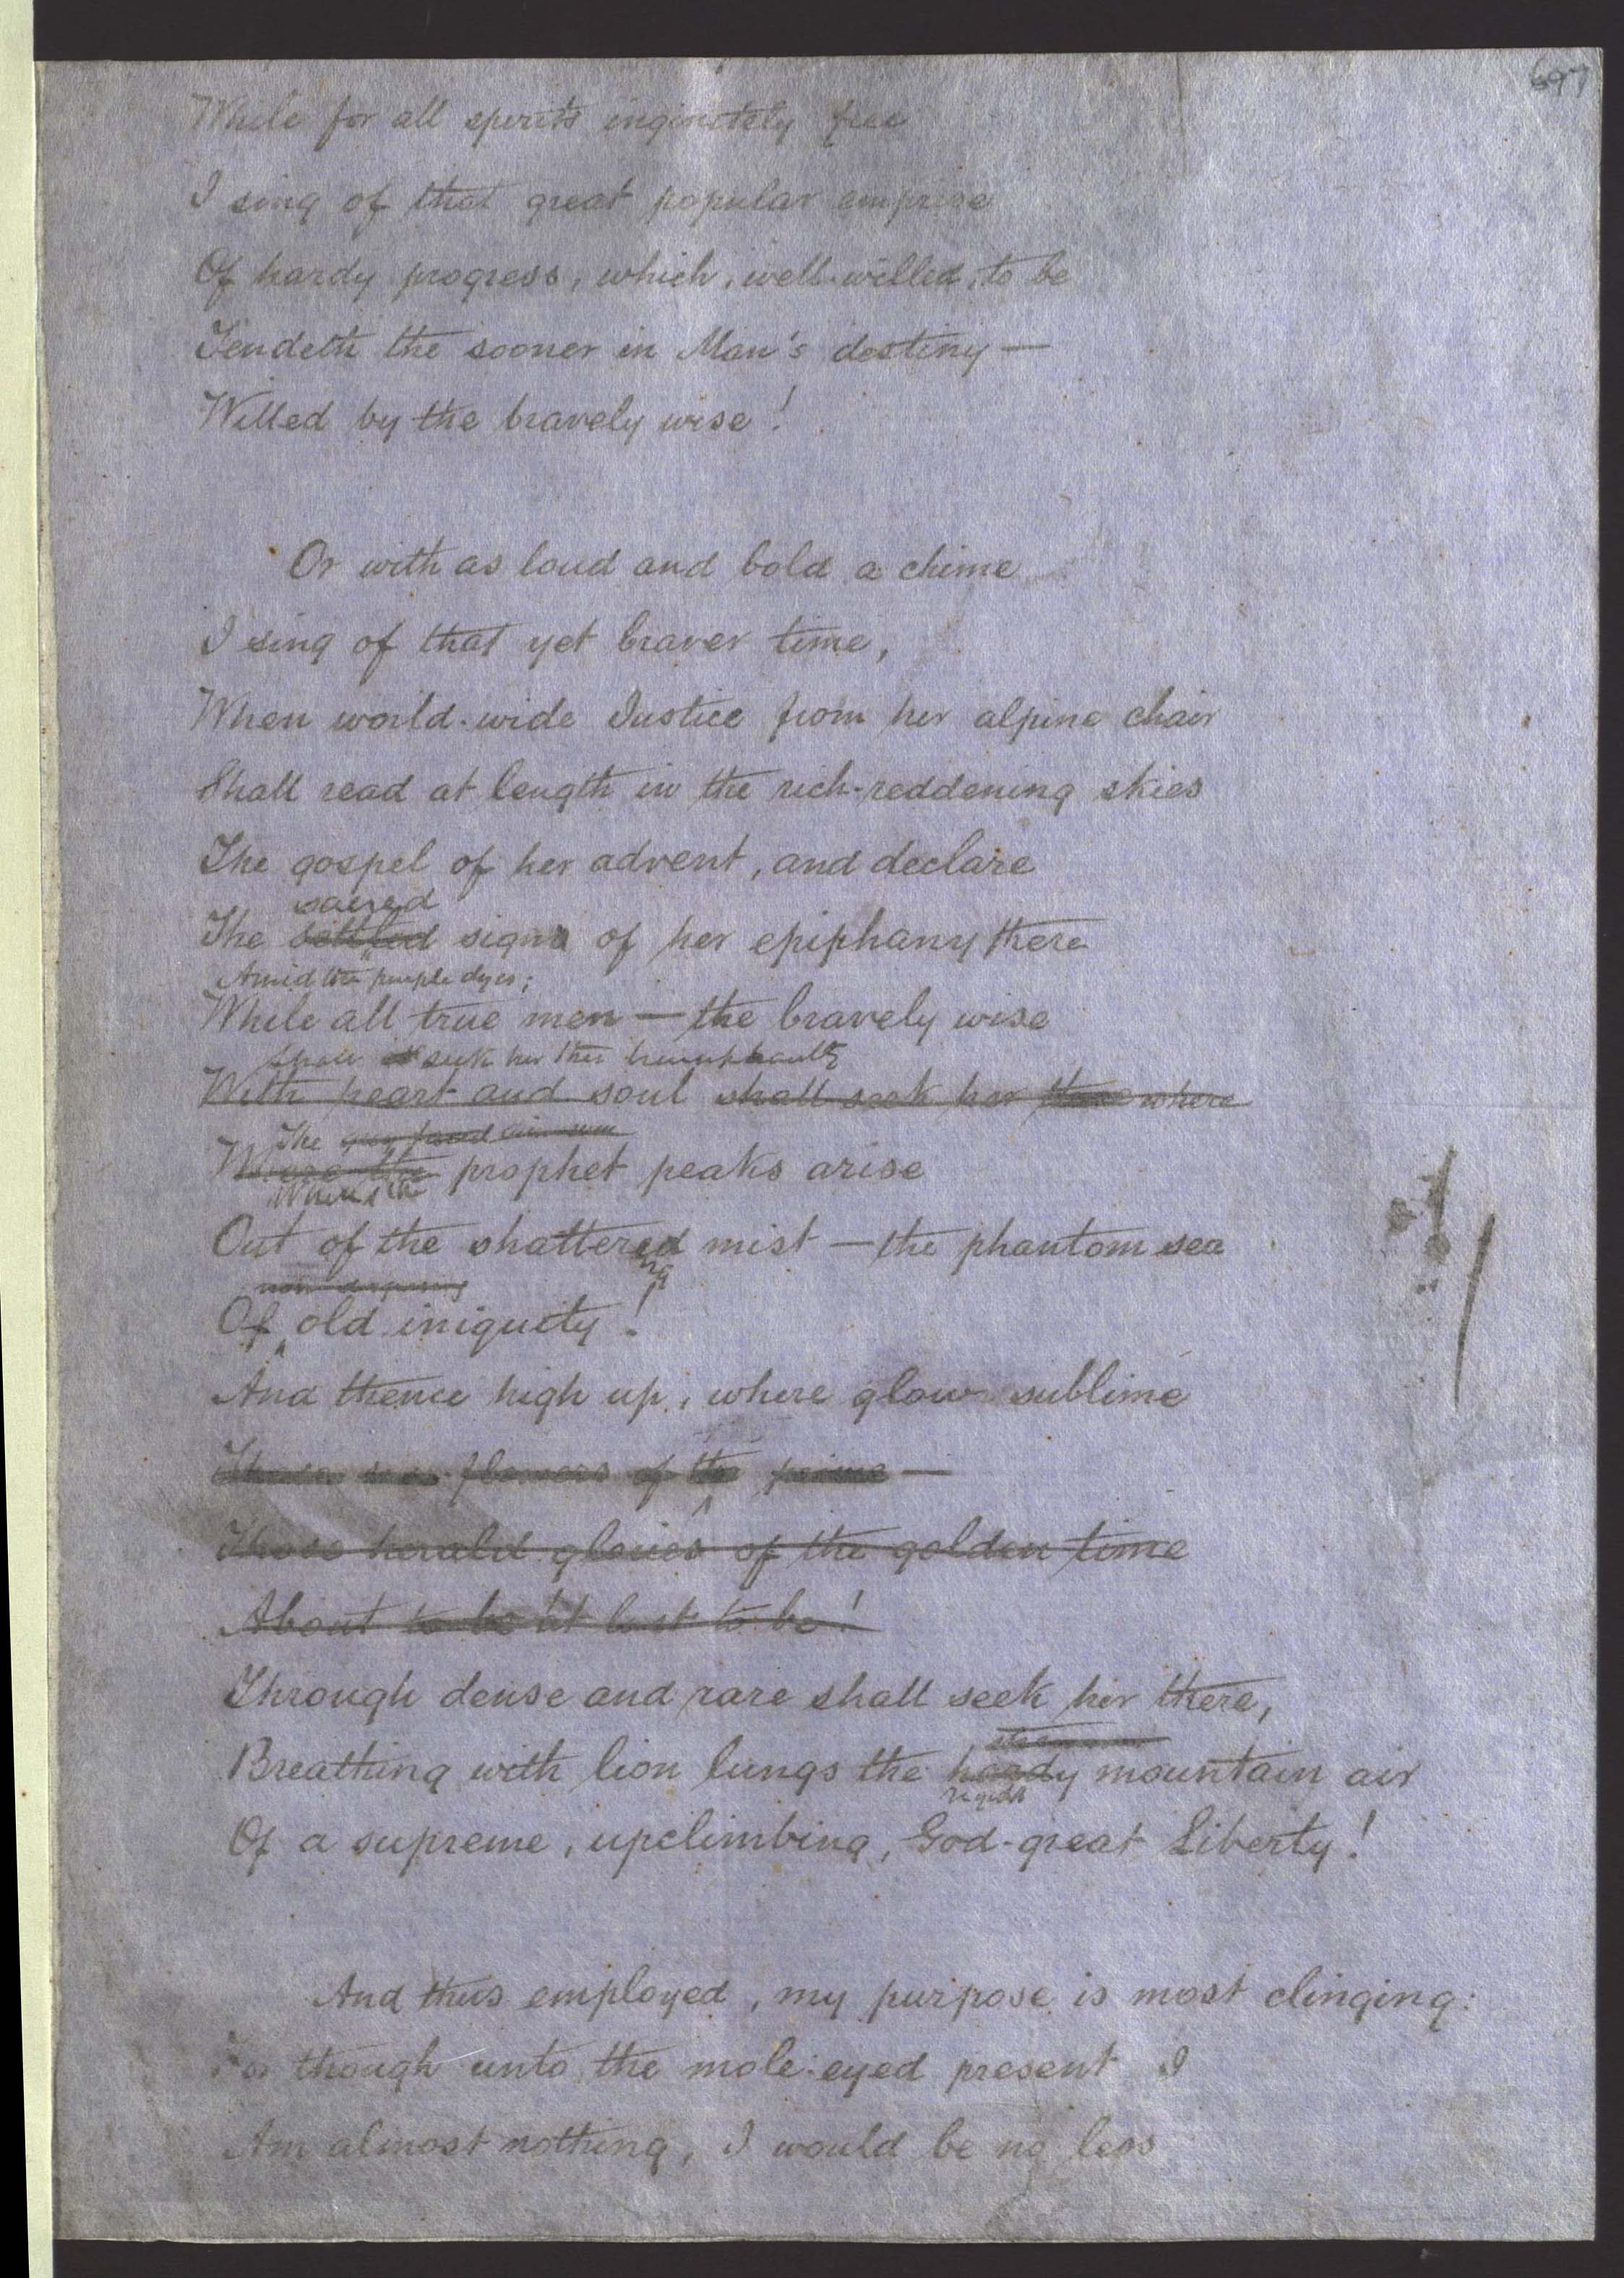 697
While for all spirits infinitely free
I sing of that great popular emprise
Of hardy progress, which, well-willed, to be
Tendeth the sooner in Man's destiny —
Willed by the bravely wise!
Or with as loud and bold a chime
I sing of that yet braver time,
When world-wide Justice from her alpine chair
Shall read at length in the rich-reddening skies
The gospel of her advent, and declare
sacred
The signs of her epiphany there
Amid the purple dyes;
While all true men — the bravely wise
Shall seek her there triumphantly
With heart and soul shall seek her there where
The
Where the prophet peaks arise
Where the
Out of the shattered mist — the phantom sea
ng
Of old iniquity!
And thence high up, where glow sublime
flowers of the prime —
Those herald glories of the golden time
About to be at last to be!
Through dense and rare shall seek her there,
Breathing with lion lungs the hardy mountain air
Of a supreme, upclimbing, God-great Liberty!
And thus employed, my purpose is most clinging:
For though unto the mole-eyed present I
Am almost nothing, I would be no less